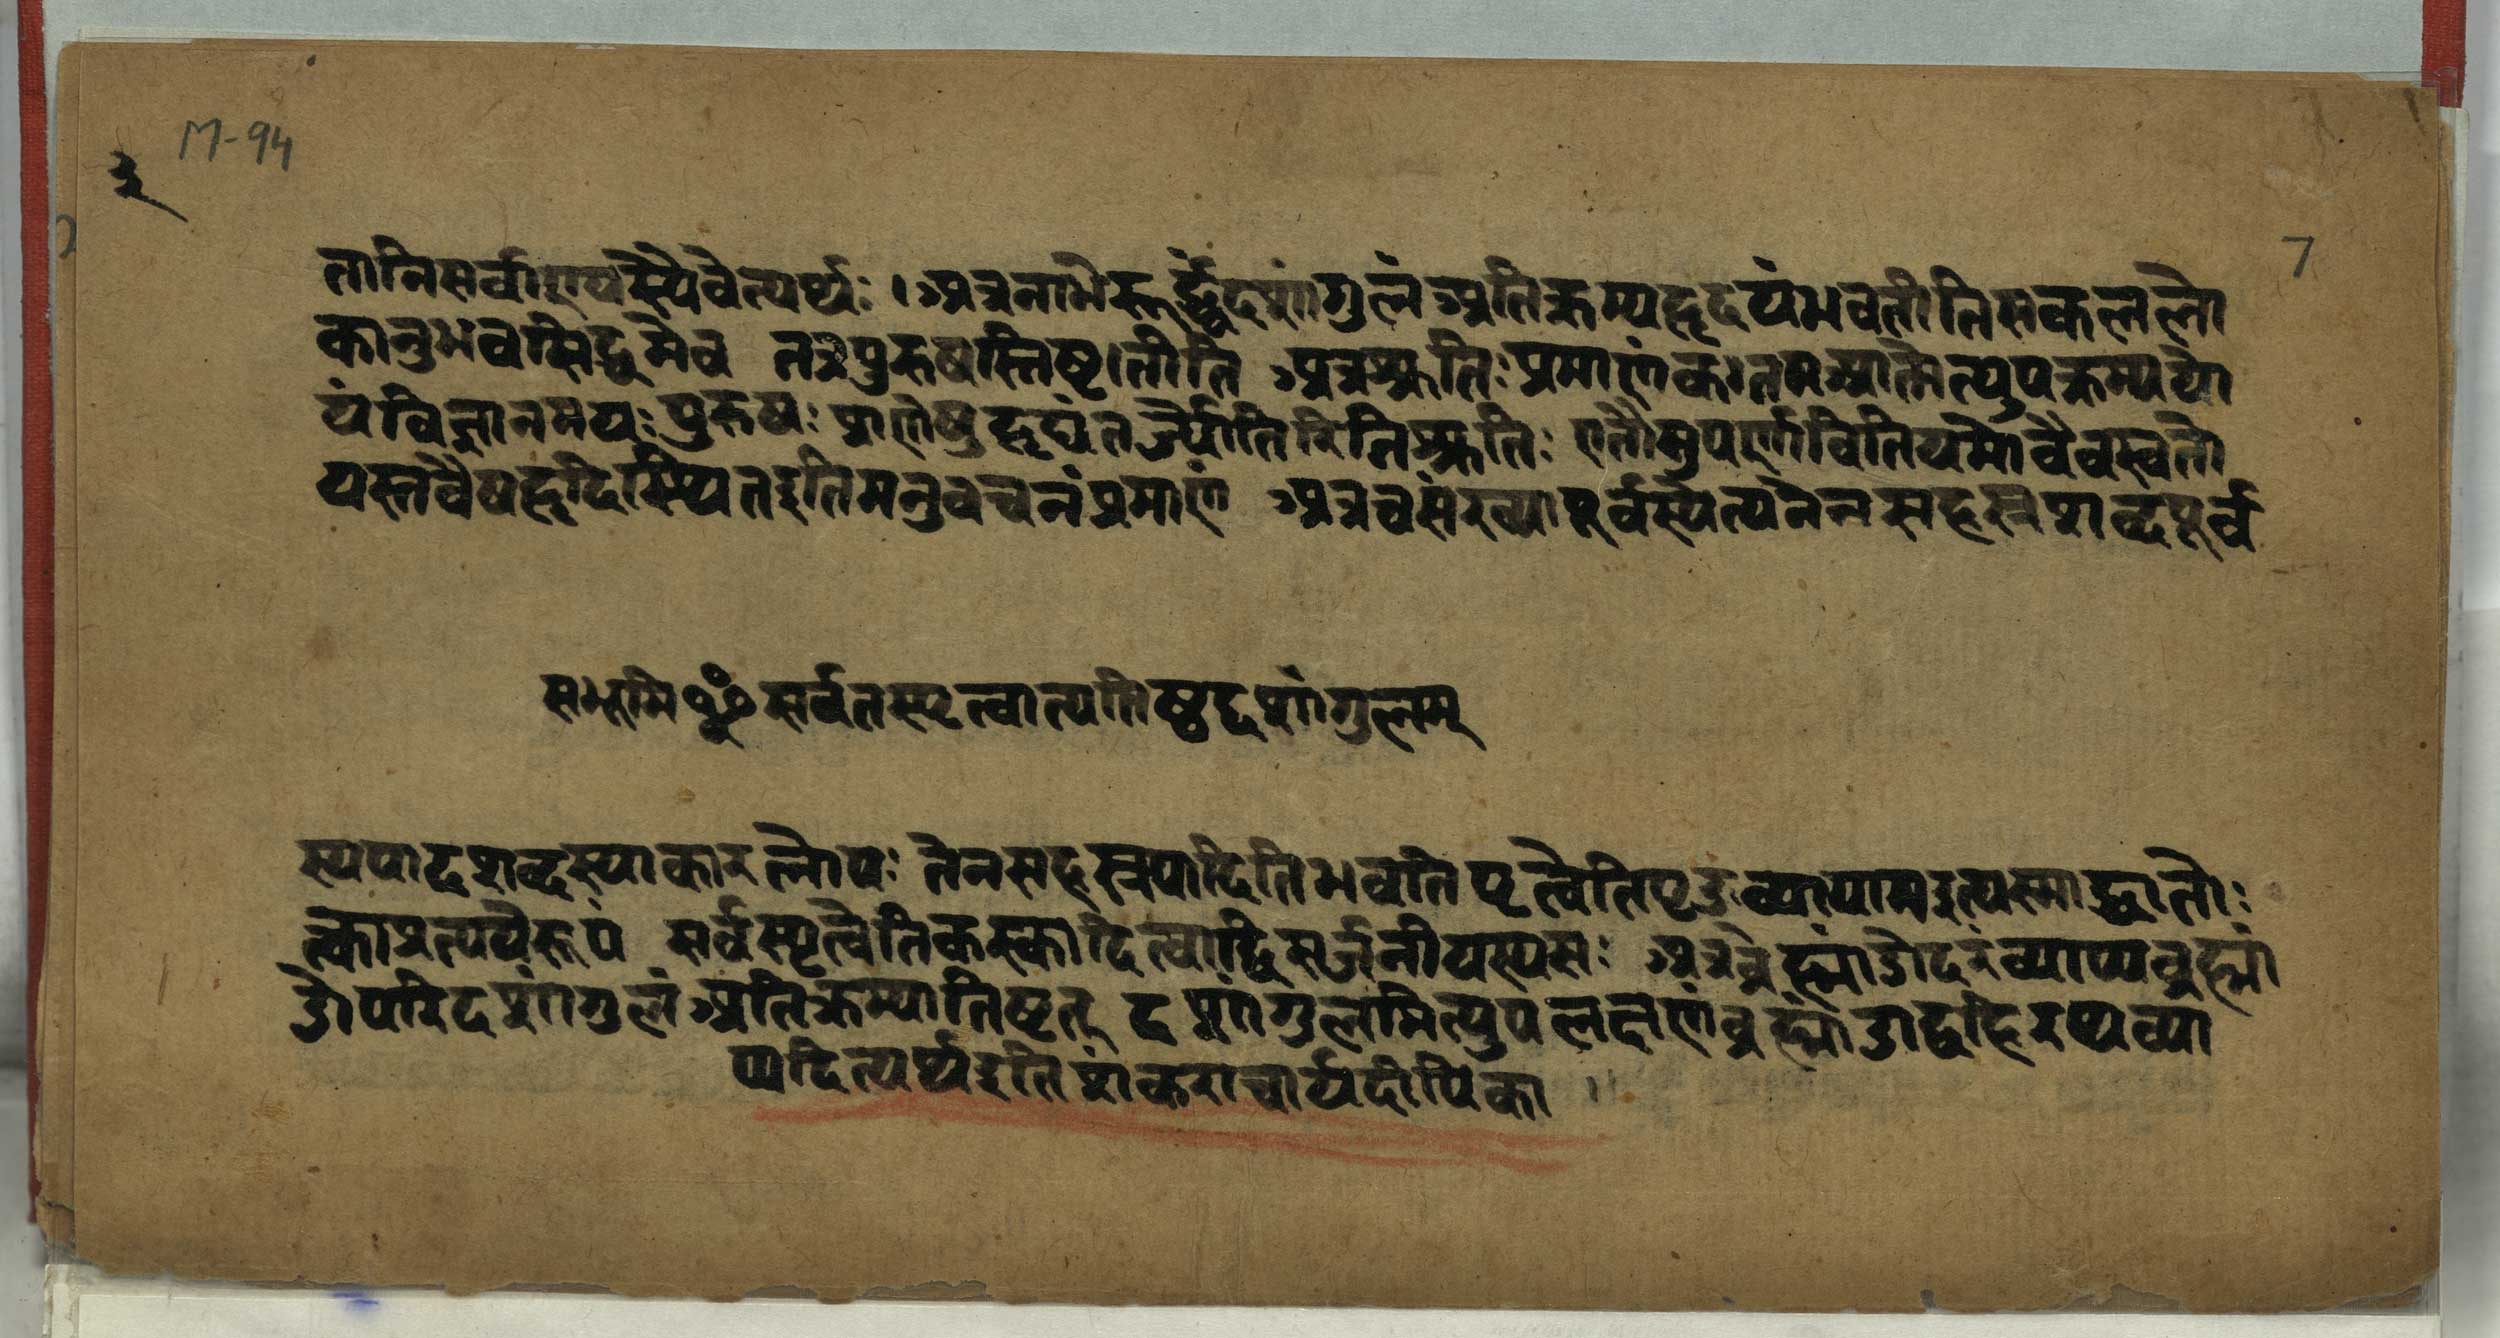 M-94
३
7
तानिसर्वाण्यस्यैवेत्यर्थः । अत्रनाभेरूर्द्ध्वंदशांगुलं अतिक्रम्यहृदयंभवतीतिसकललो
कानुभवसिद्धमेव तत्रपुरुषस्तिष्टतीति अत्रश्रुतिः प्रमाणं कतमआत्मेत्युपक्रम्ययो
यंविज्ञानमयः पुरुषः प्राणेषुहृद्यंतर्ज्योतिरितिश्रुतिः एतौसुपर्णावितियमोवैवस्वतो
यस्तवैषहृदिस्थितइतिमनुवचनंप्रमाणं अत्रचसंख्यापूर्वस्येत्यनेनसहस्रशब्दपूर्व
सभूमिꣳसर्वतस्पृत्वात्यतिष्ठद्दशांगुलम्
स्यपादशब्दस्याकारलोपः तेनसहस्त्रपादितिभवति पृत्वेतिपृङव्यायामइत्यस्माद्धातोः
त्काप्रत्ययेरूपं सर्वस्पृत्वेतिकस्कादित्वाद्विसर्जनीयस्यसः अत्रब्रह्मांडोदरंव्याप्यब्रह्मां
डोपरिदशांगुलंअतिक्रम्यातिष्टत् दशांगुलमित्युपलक्षणंब्रह्मांडाद्बहिरप्यव्या
प्यदित्यर्थइतिशंकराचार्यदीपिका ॥